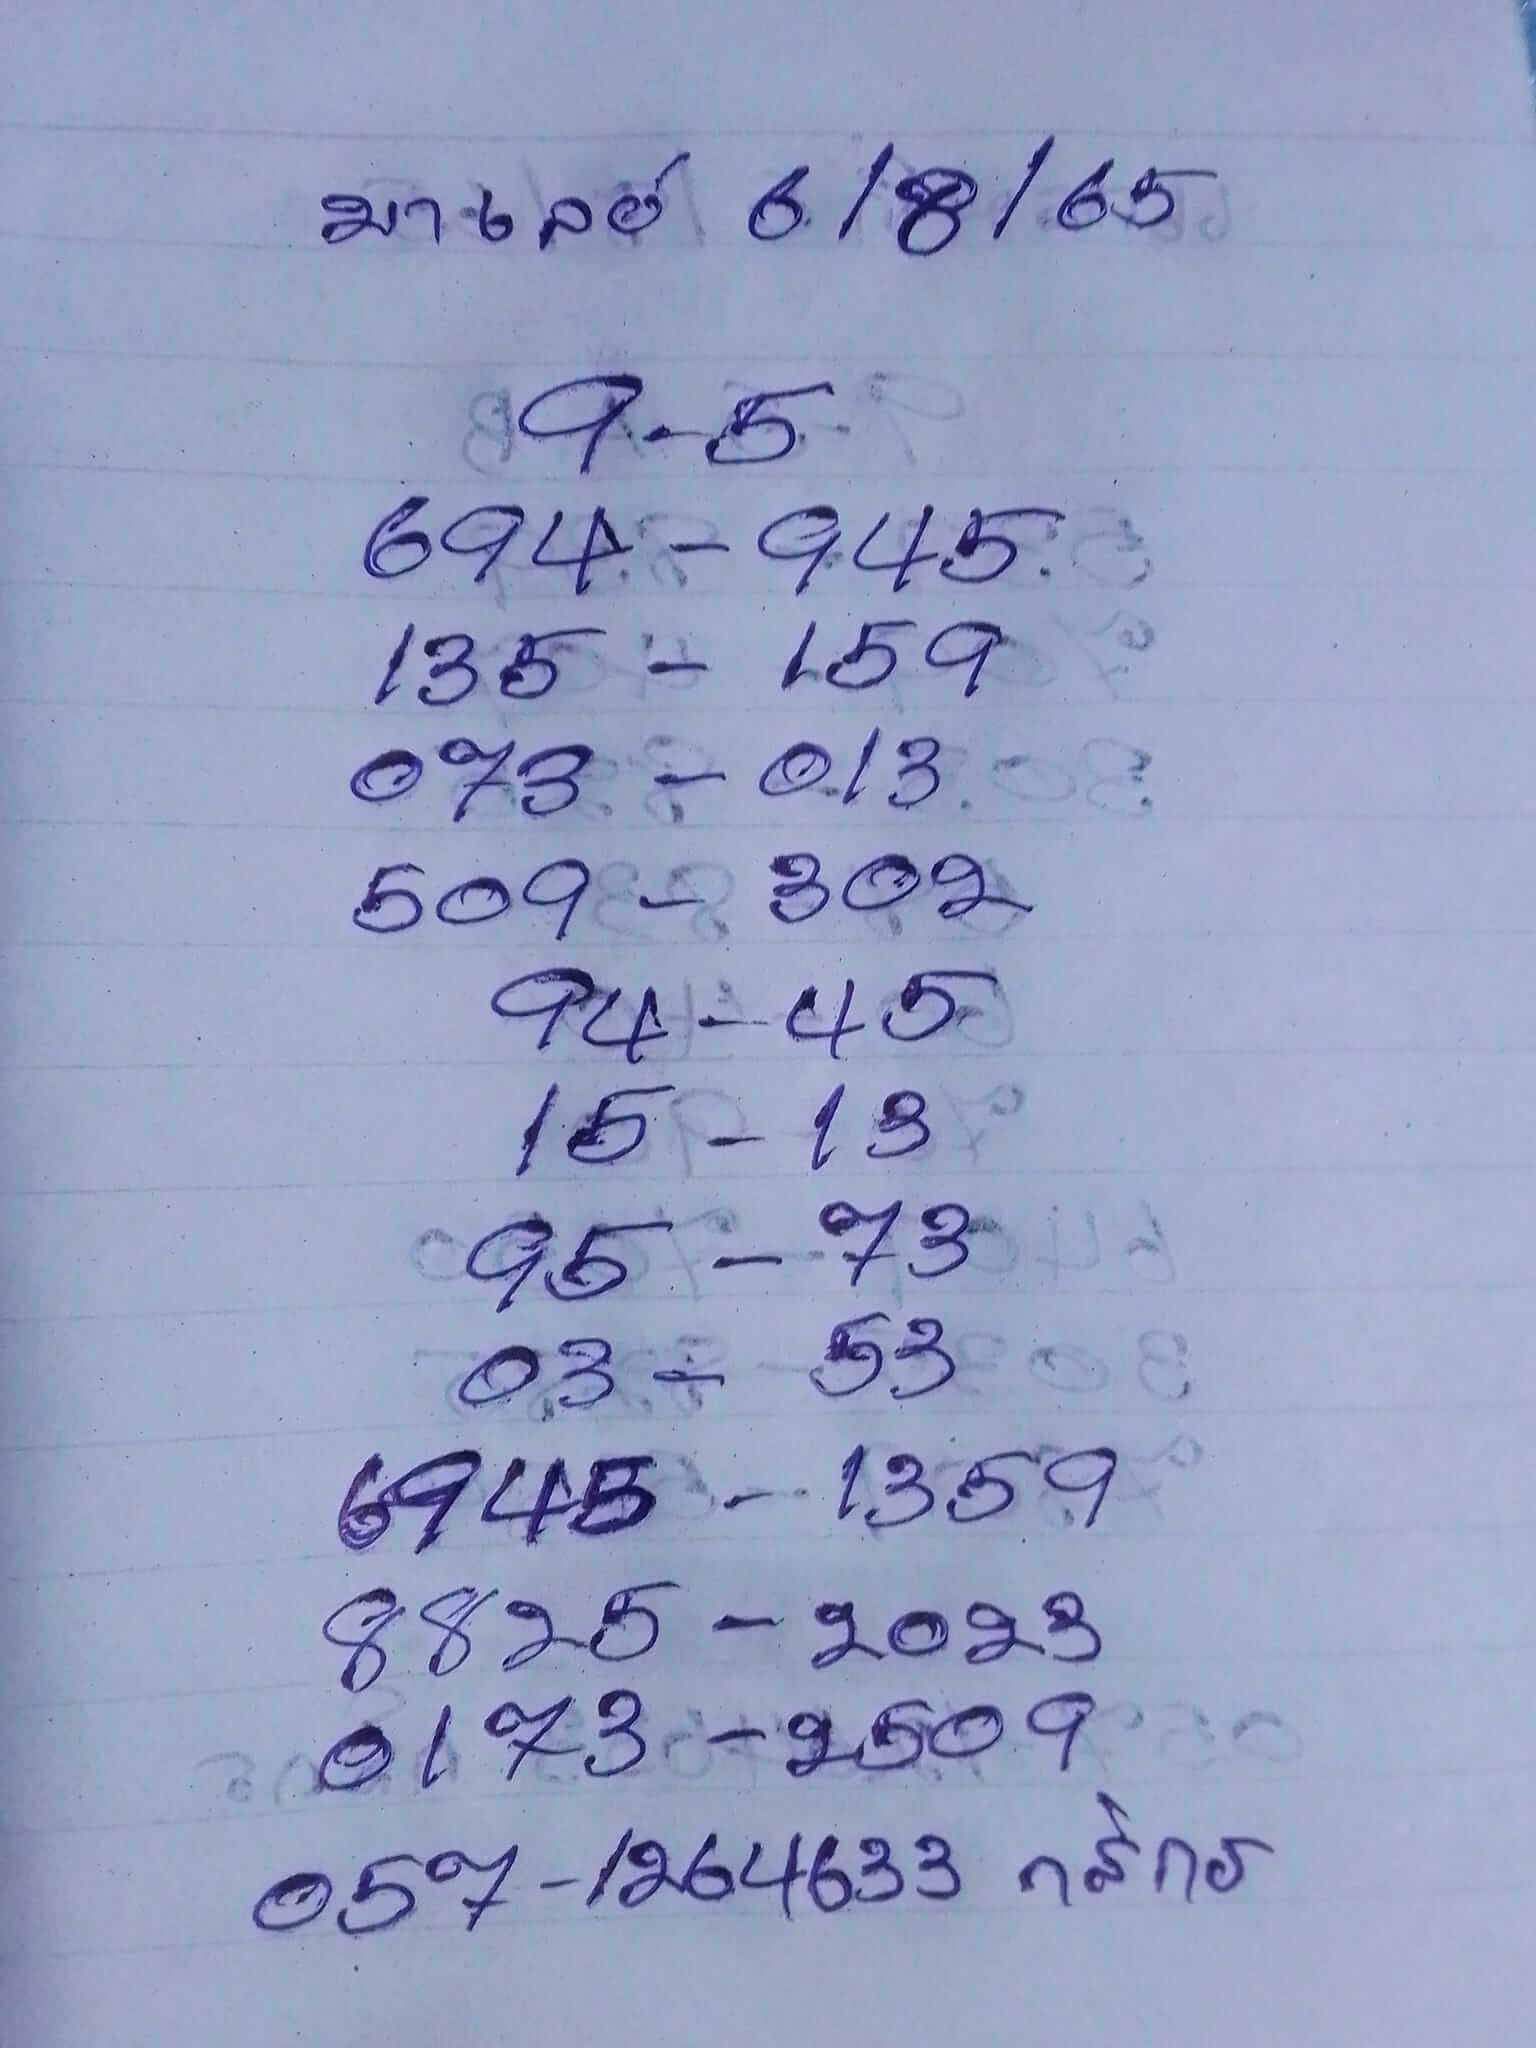 มาเลย์ 6/8/65
9-5
694-945
135-159
073-013
509-302
94-45
15-13
95-73
03-53
6945-1359
8825-2023
0173-2509
057-1264633 กสิกร